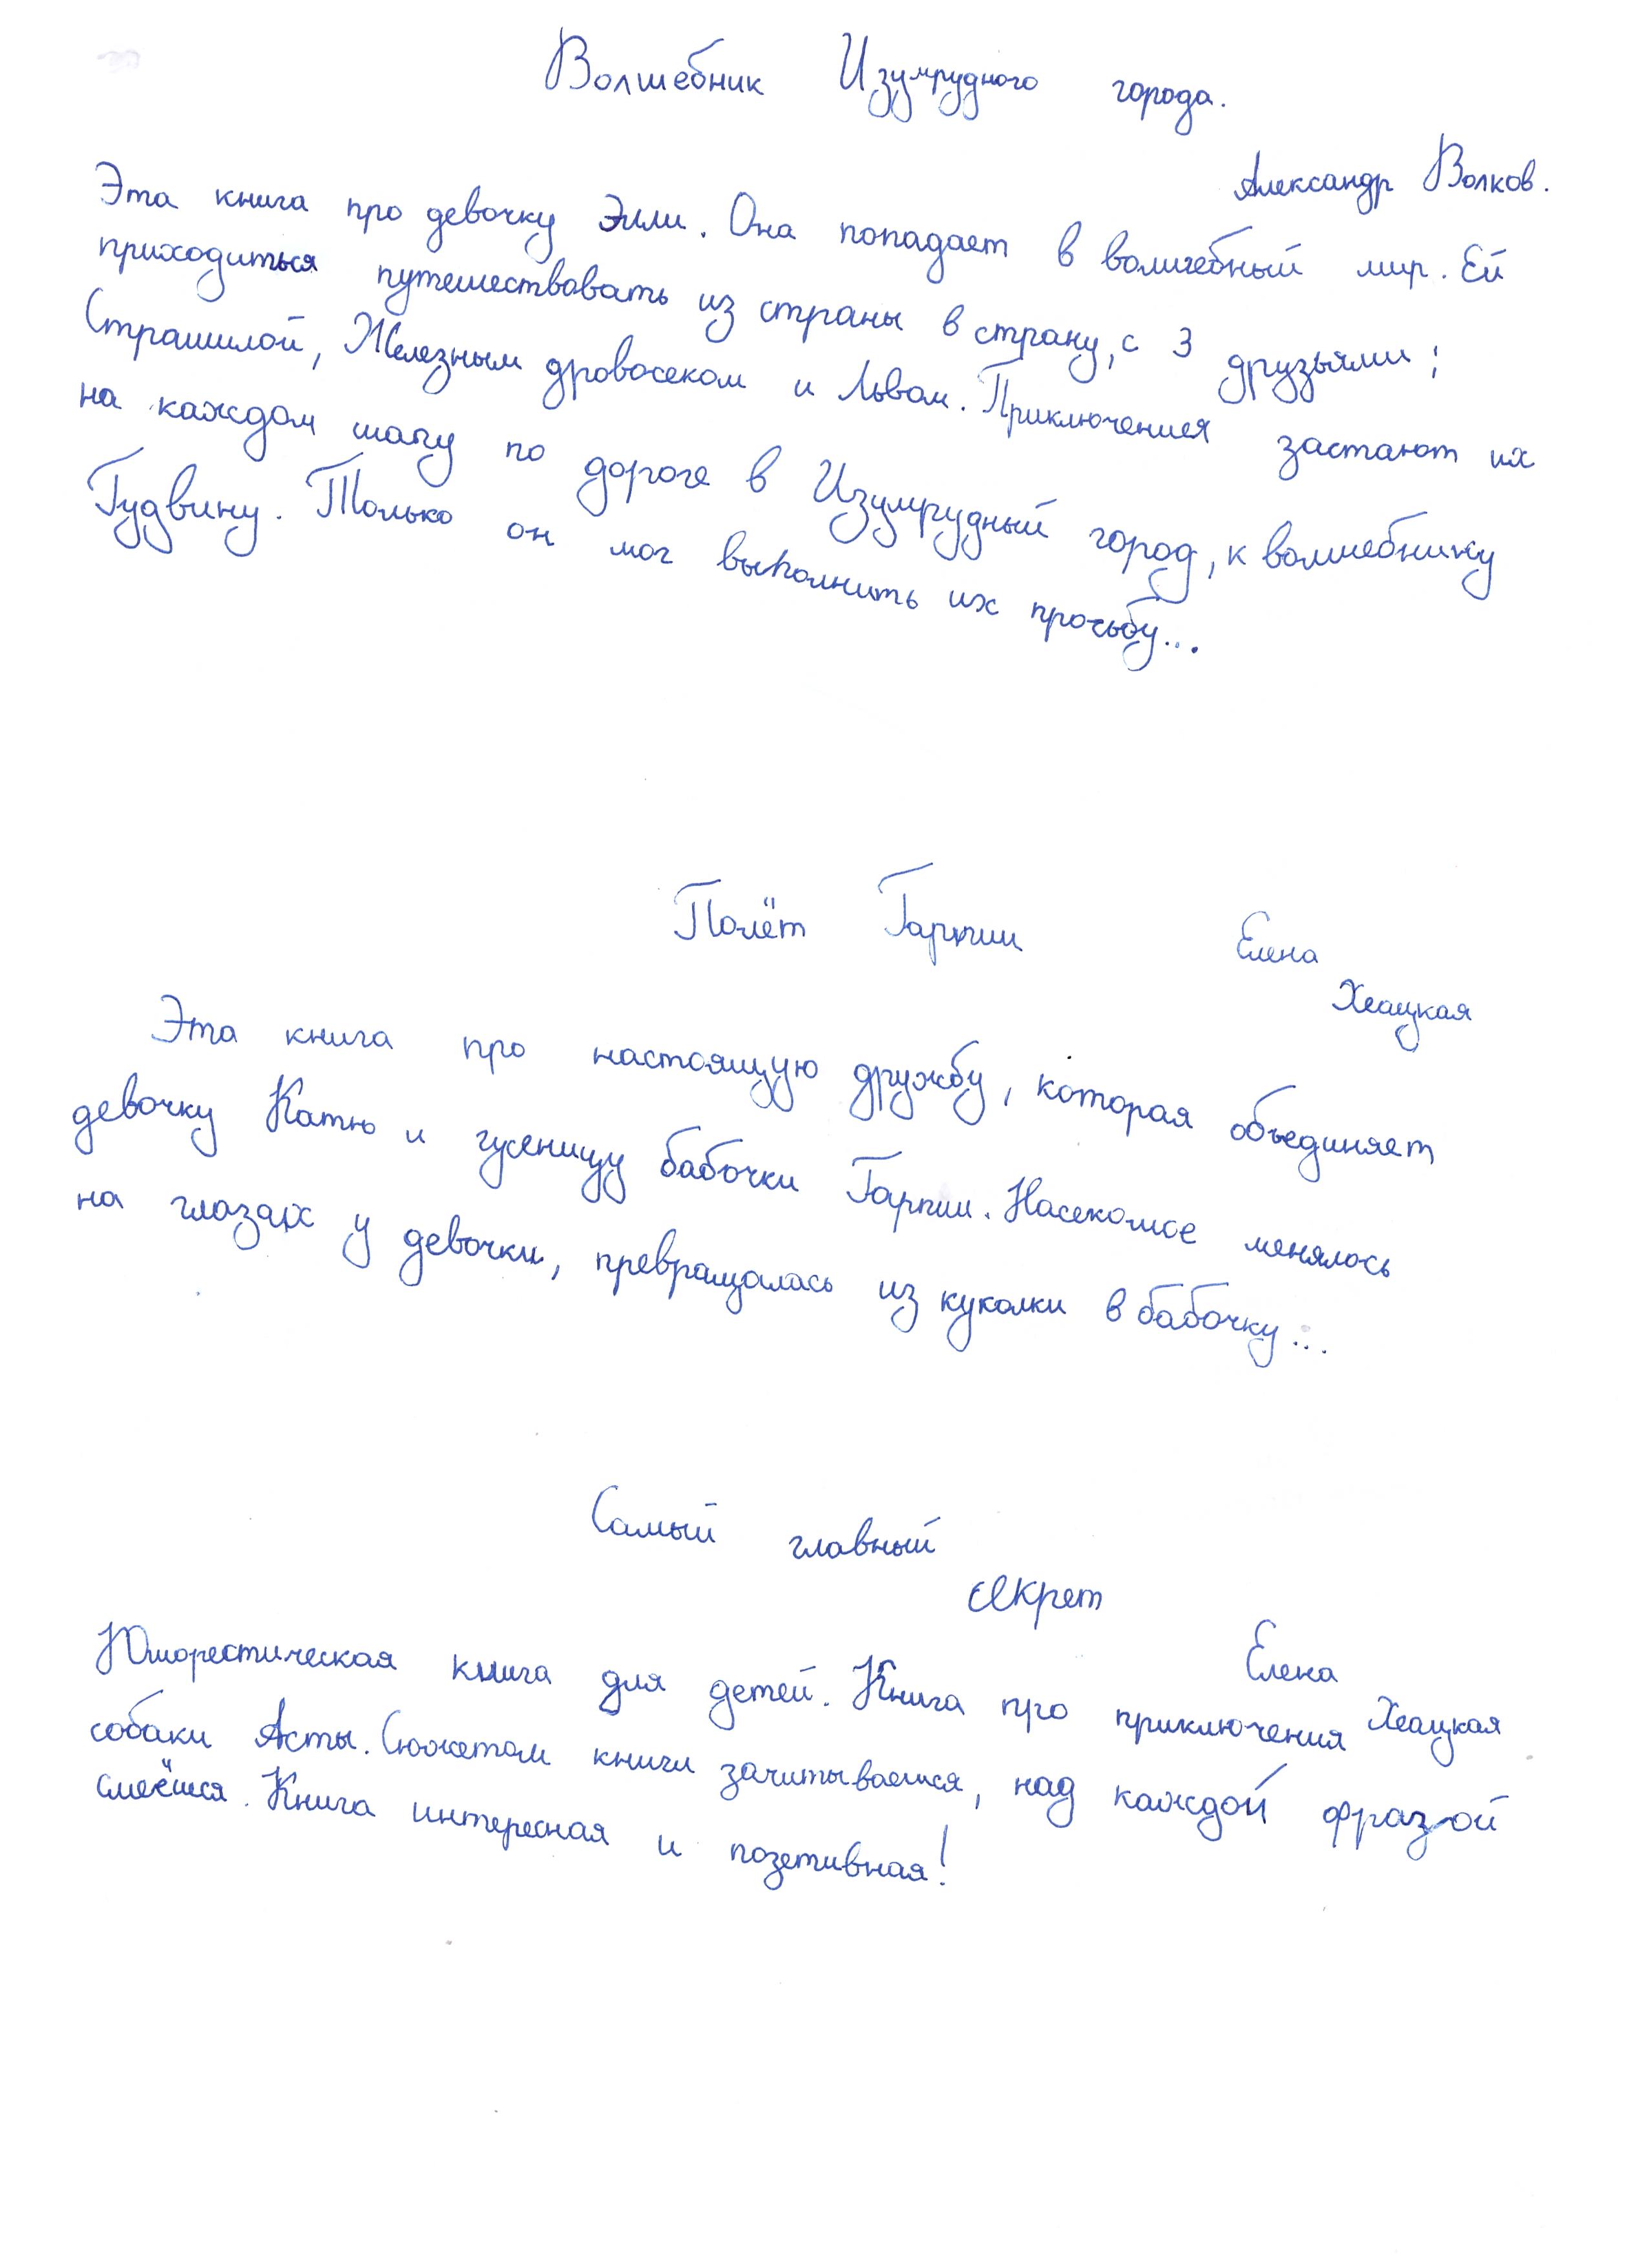 Волшебник Изумрудного города.
Александр Волков.
Эта книга про девочку Элли. Она попадает в волшебный мир. Ей
приходиться путешествовать из страны в страну, с 3 друзьями;
Страшилой, Железным дровосеком и Львом. Приключения застают их
на каждом шагу по дороге в Изумрудный город, к волшебнику
Гудвину. Только он мог выполнить их прочьбу...
Полёт Гарпии
Елена
Хеацкая
Эта книга про настоящую дружбу, которая объединяет
девочку Катю и гусеницу бабочки Гарпии. Насекомое менялось
на глазах у девочки, превращалась из куколки в бабочку...
Самый главный
секрет
Елена
Хеацкая
Юморестическая книга для детей. Книга про приключения
собаки Асты. Сюжетом книги зачитываешся, над каждой фразой
смеёшся. Книга интересная и позетивная!